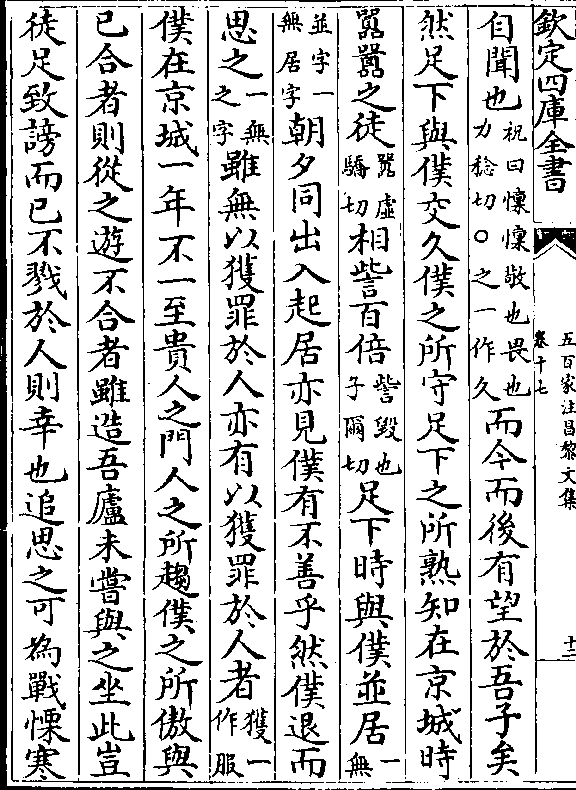 欽定四庫全書
五百家注昌黎文集
卷十七
十三
自聞也祝曰懍懍敬也畏也力稔切○之一作久而今而後有望於吾子矣
然足下與僕交久僕之所守足下之所熟知在京城時
嚣嚣之徒嚣虛驕切相訾百倍訾毀也子爾切足下時與僕並居一無
並字一無居字朝夕同出入起居亦見僕有不善乎然僕退而
思之一無之字雖無以獲罪於人亦有以獲罪於人者獲一作服
僕在京城一年不一至貴人之門人之所趨僕之所傲與
已合者則從之遊不合者雖造吾廬未嘗與之坐此豈
徒足致謗而已不戮於人則幸也追思之可為戰慄寒